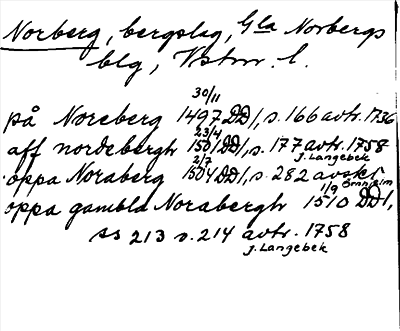 Norberg, bergslag, Gla Norbergs
blg, Vstm. l.
30/11
på Noreberg 1497 DD1, s. 166 avtr. 1736
23/4
aff nordebergh 1501 DD1, s. 177 avtr. 1758
J. Langebek
2/7
oppa Noraberg 1504 DD1, s. 282 avskr.
Örnhielm
1/9
oppa gambla Norabergh 1510 DD1,
ss 213 o. 214 avtr. 1758
J. Langebek